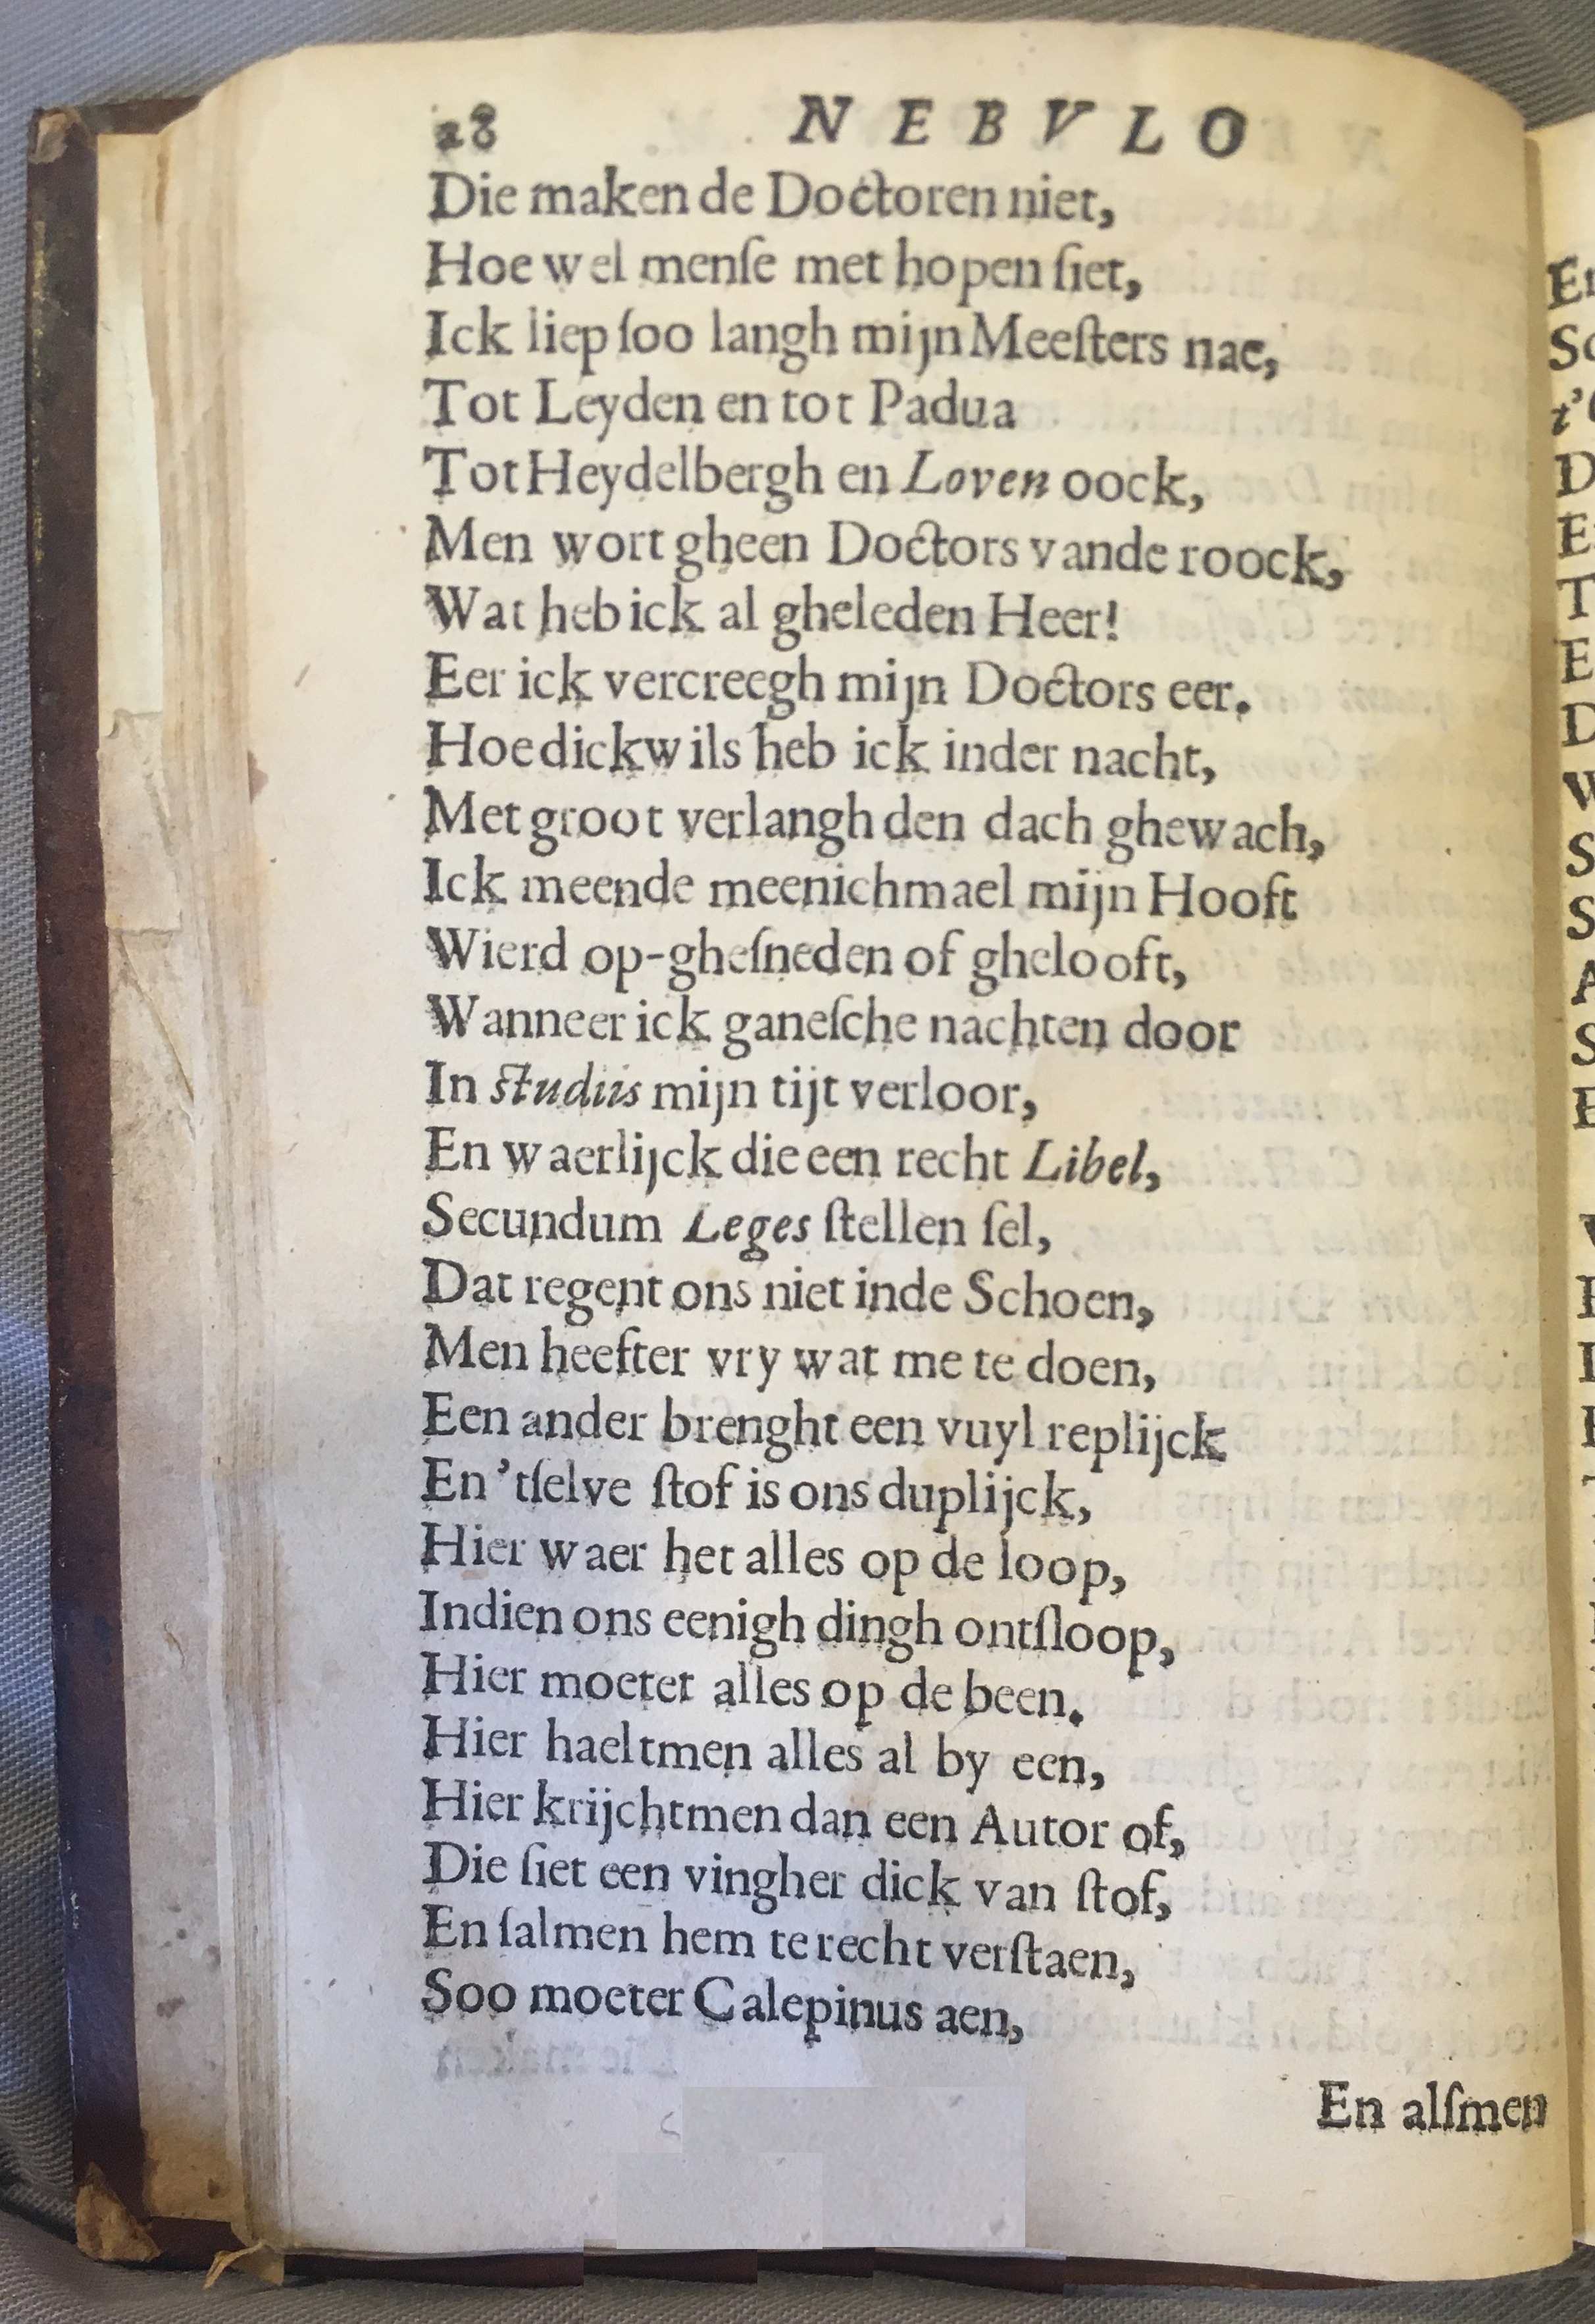 28 NEBVLO
Die maken de Doctoren niet,
Hoe wel menſe met hopen ſiet,
Ick liep ſoo langh mijn Meeſters nae,
Tot Leyden en tot Padua
Tot Heydelbergh en Loven oock,
Men wort gheen Doctors vande roock,
Wat heb ick al gheleden Heer!
Eer ick vercreegh mijn Doctors eer.
Hoe dickwils heb ick inder nacht,
Met groot verlangh den dach ghewach,
Ick meende meenichmael mijn Hooft
Wierd op-gheſneden of ghelooft,
Wanneer ick ganeſche nachten door
In ſtudiis mijn tijt verloor,
En waerlijck die een recht Libel,
Secundum Leges ſtellen ſel,
Dat regent ons niet inde Schoen,
Men heefter vry wat me te doen,
Een ander brenght een vuyl replijck
En 'tſelve ſtof is ons duplijck,
Hier waer het alles op de loop,
Indien ons eenigh dingh ontſloop,
Hier moetet alles op de been.
Hier haeltmen alles al by een,
Hier krijchtmen dan een Autor of,
Die ſiet een vingher dick van ſtof,
En ſalmen hem te recht verſtaen,
Soo moeter Calepinus aen,
En alſmen